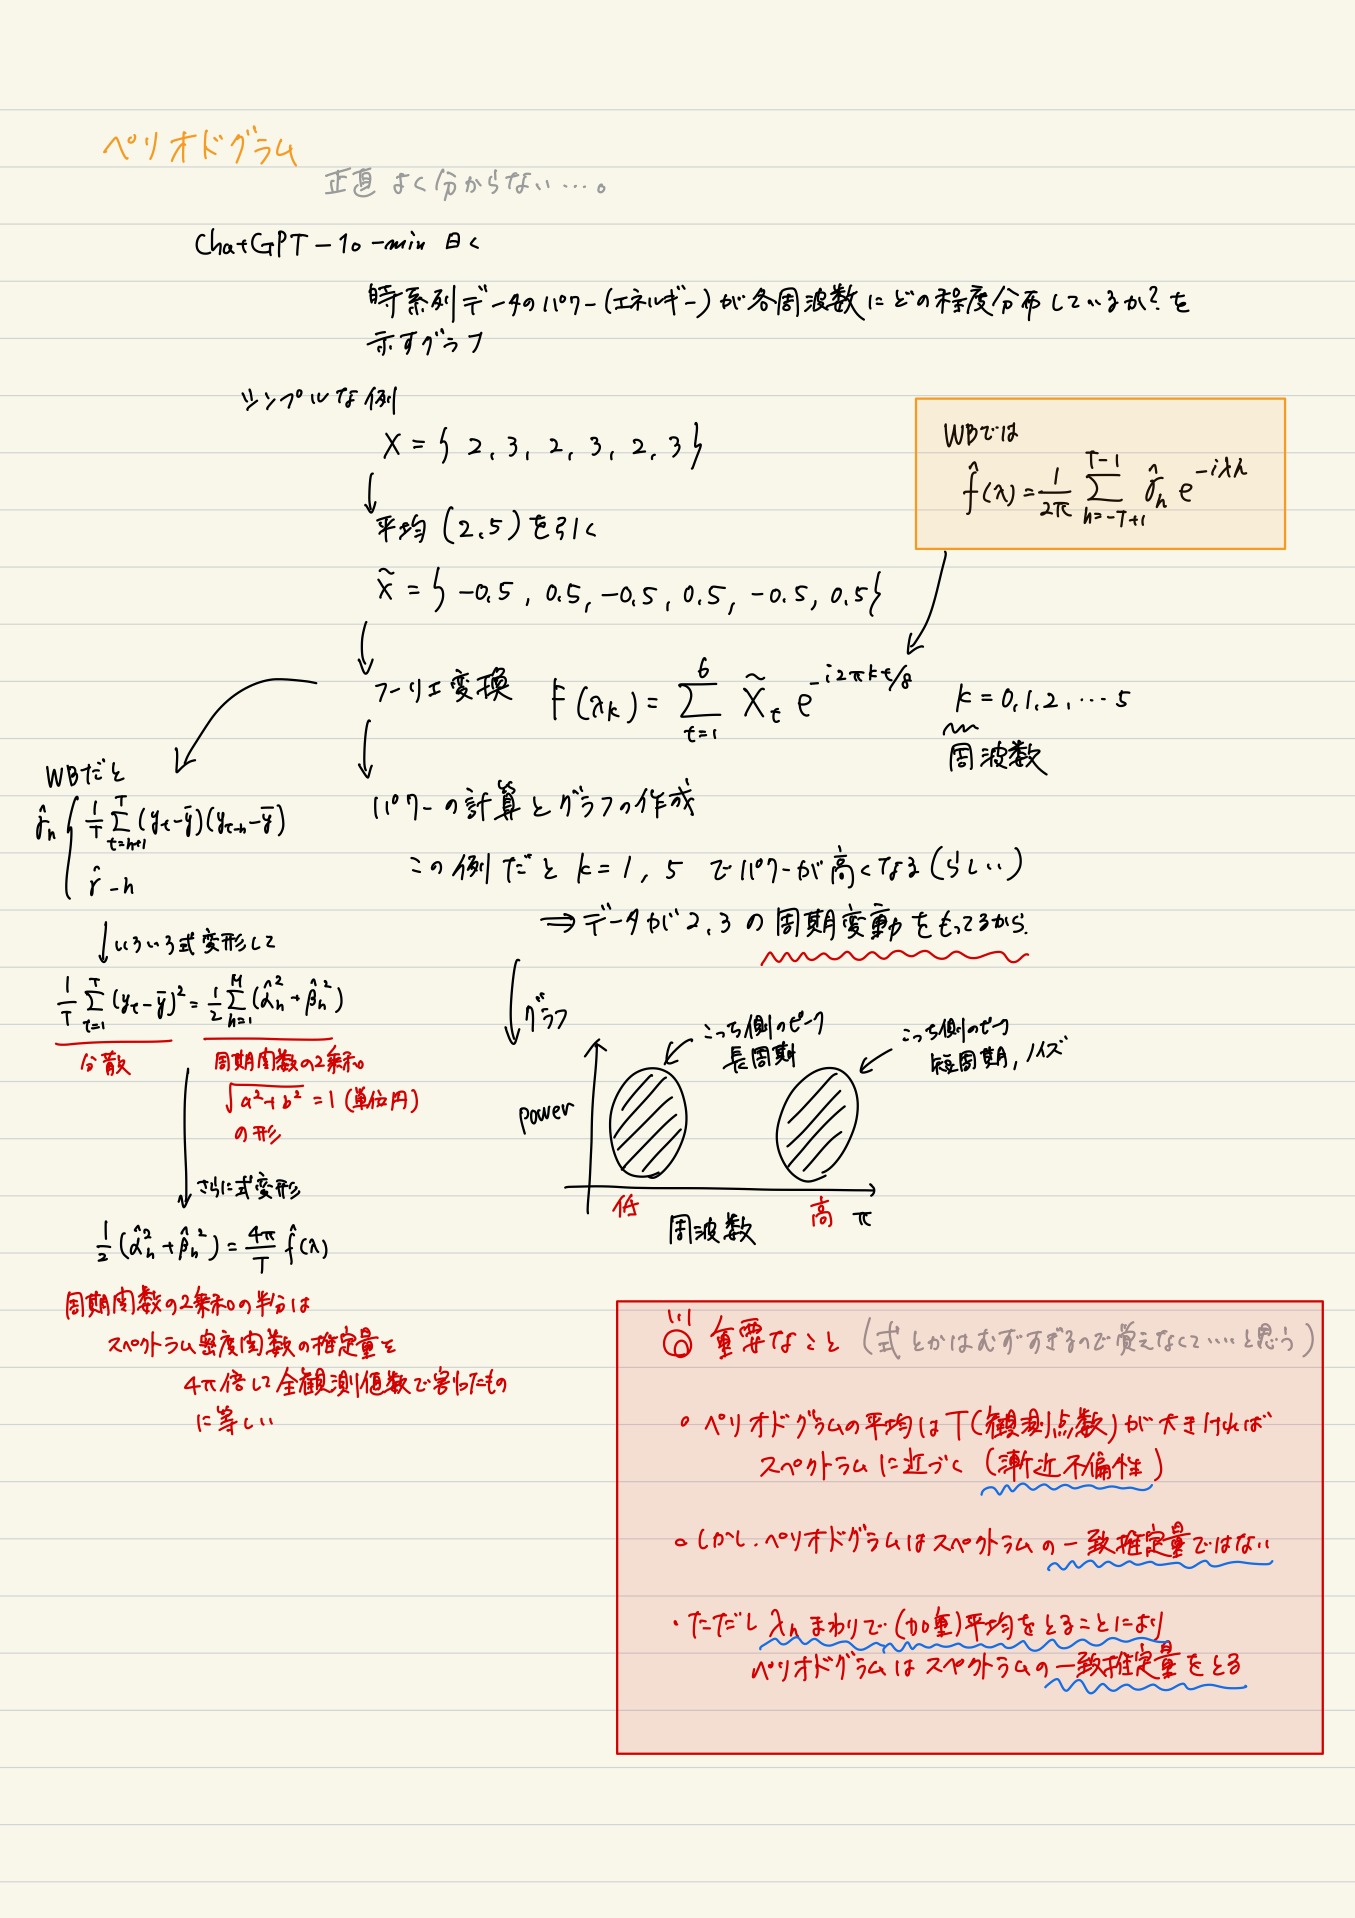 ペリオドグラム
正直 よく分からない…。
ChatGPT-1o-min 曰く
時系列データのパワー(エネルギー)が各周波数にどの程度分布しているか?を
示すグラフ
シンプルな例
X = { 2, 3, 2, 3, 2, 3 }
平均 (2.5) を引く
X̃ = { -0.5, 0.5, -0.5, 0.5, -0.5, 0.5 }
WBでは
f̂(λ) = 1/2π Σ_{h=-T+1}^{T-1} γ̂_h e^{-iλh}
フーリエ変換 F(λ_k) = Σ_{t=1}^{6} X̃_t e^{-i2πkt/8} k = 0,1,2,…5
周波数
パワーの計算とグラフの作成
この例だと k = 1, 5 でパワーが高くなる(らしい)
⇒ データが 2, 3 の周期変動をもってるから.
WBだと
γ̂_h { 1/T Σ_{t=h+1}^{T} (y_t - ȳ)(y_{t-h} - ȳ)
r̂_-h
↓ いろいろ式変形して
1/T Σ_{t=1}^{T} (y_t - ȳ)² = 1/2 Σ_{h=1}^{M} (α̂_h² + β̂_h²)
分散
周期関数の2乗和。
√a²+b² = 1 (単位円)
の形
さらに式変形
1/2 (α̂_h² + β̂_h²) = 4π/T f̂(λ)
周期関数の2乗和の半分は
スペクトラム密度関数の推定量を
4π倍して全観測値数で割ったもの
に等しい
グラフ
こっち側のピーク
長周期
こっち側のピーク
短周期, ノイズ
power
低
高 π
周波数
重要なこと (式とかはむずすぎるので覚えなくて……と思う)
○ ペリオドグラムの平均は T(観測点数)が大きければ
スペクトラムに近づく (漸近不偏性)
○ しかし. ペリオドグラムはスペクトラムの一致推定量ではない
・ただし λ_h まわりで (加重)平均をとることにより
ペリオドグラムはスペクトラムの一致推定量をとる